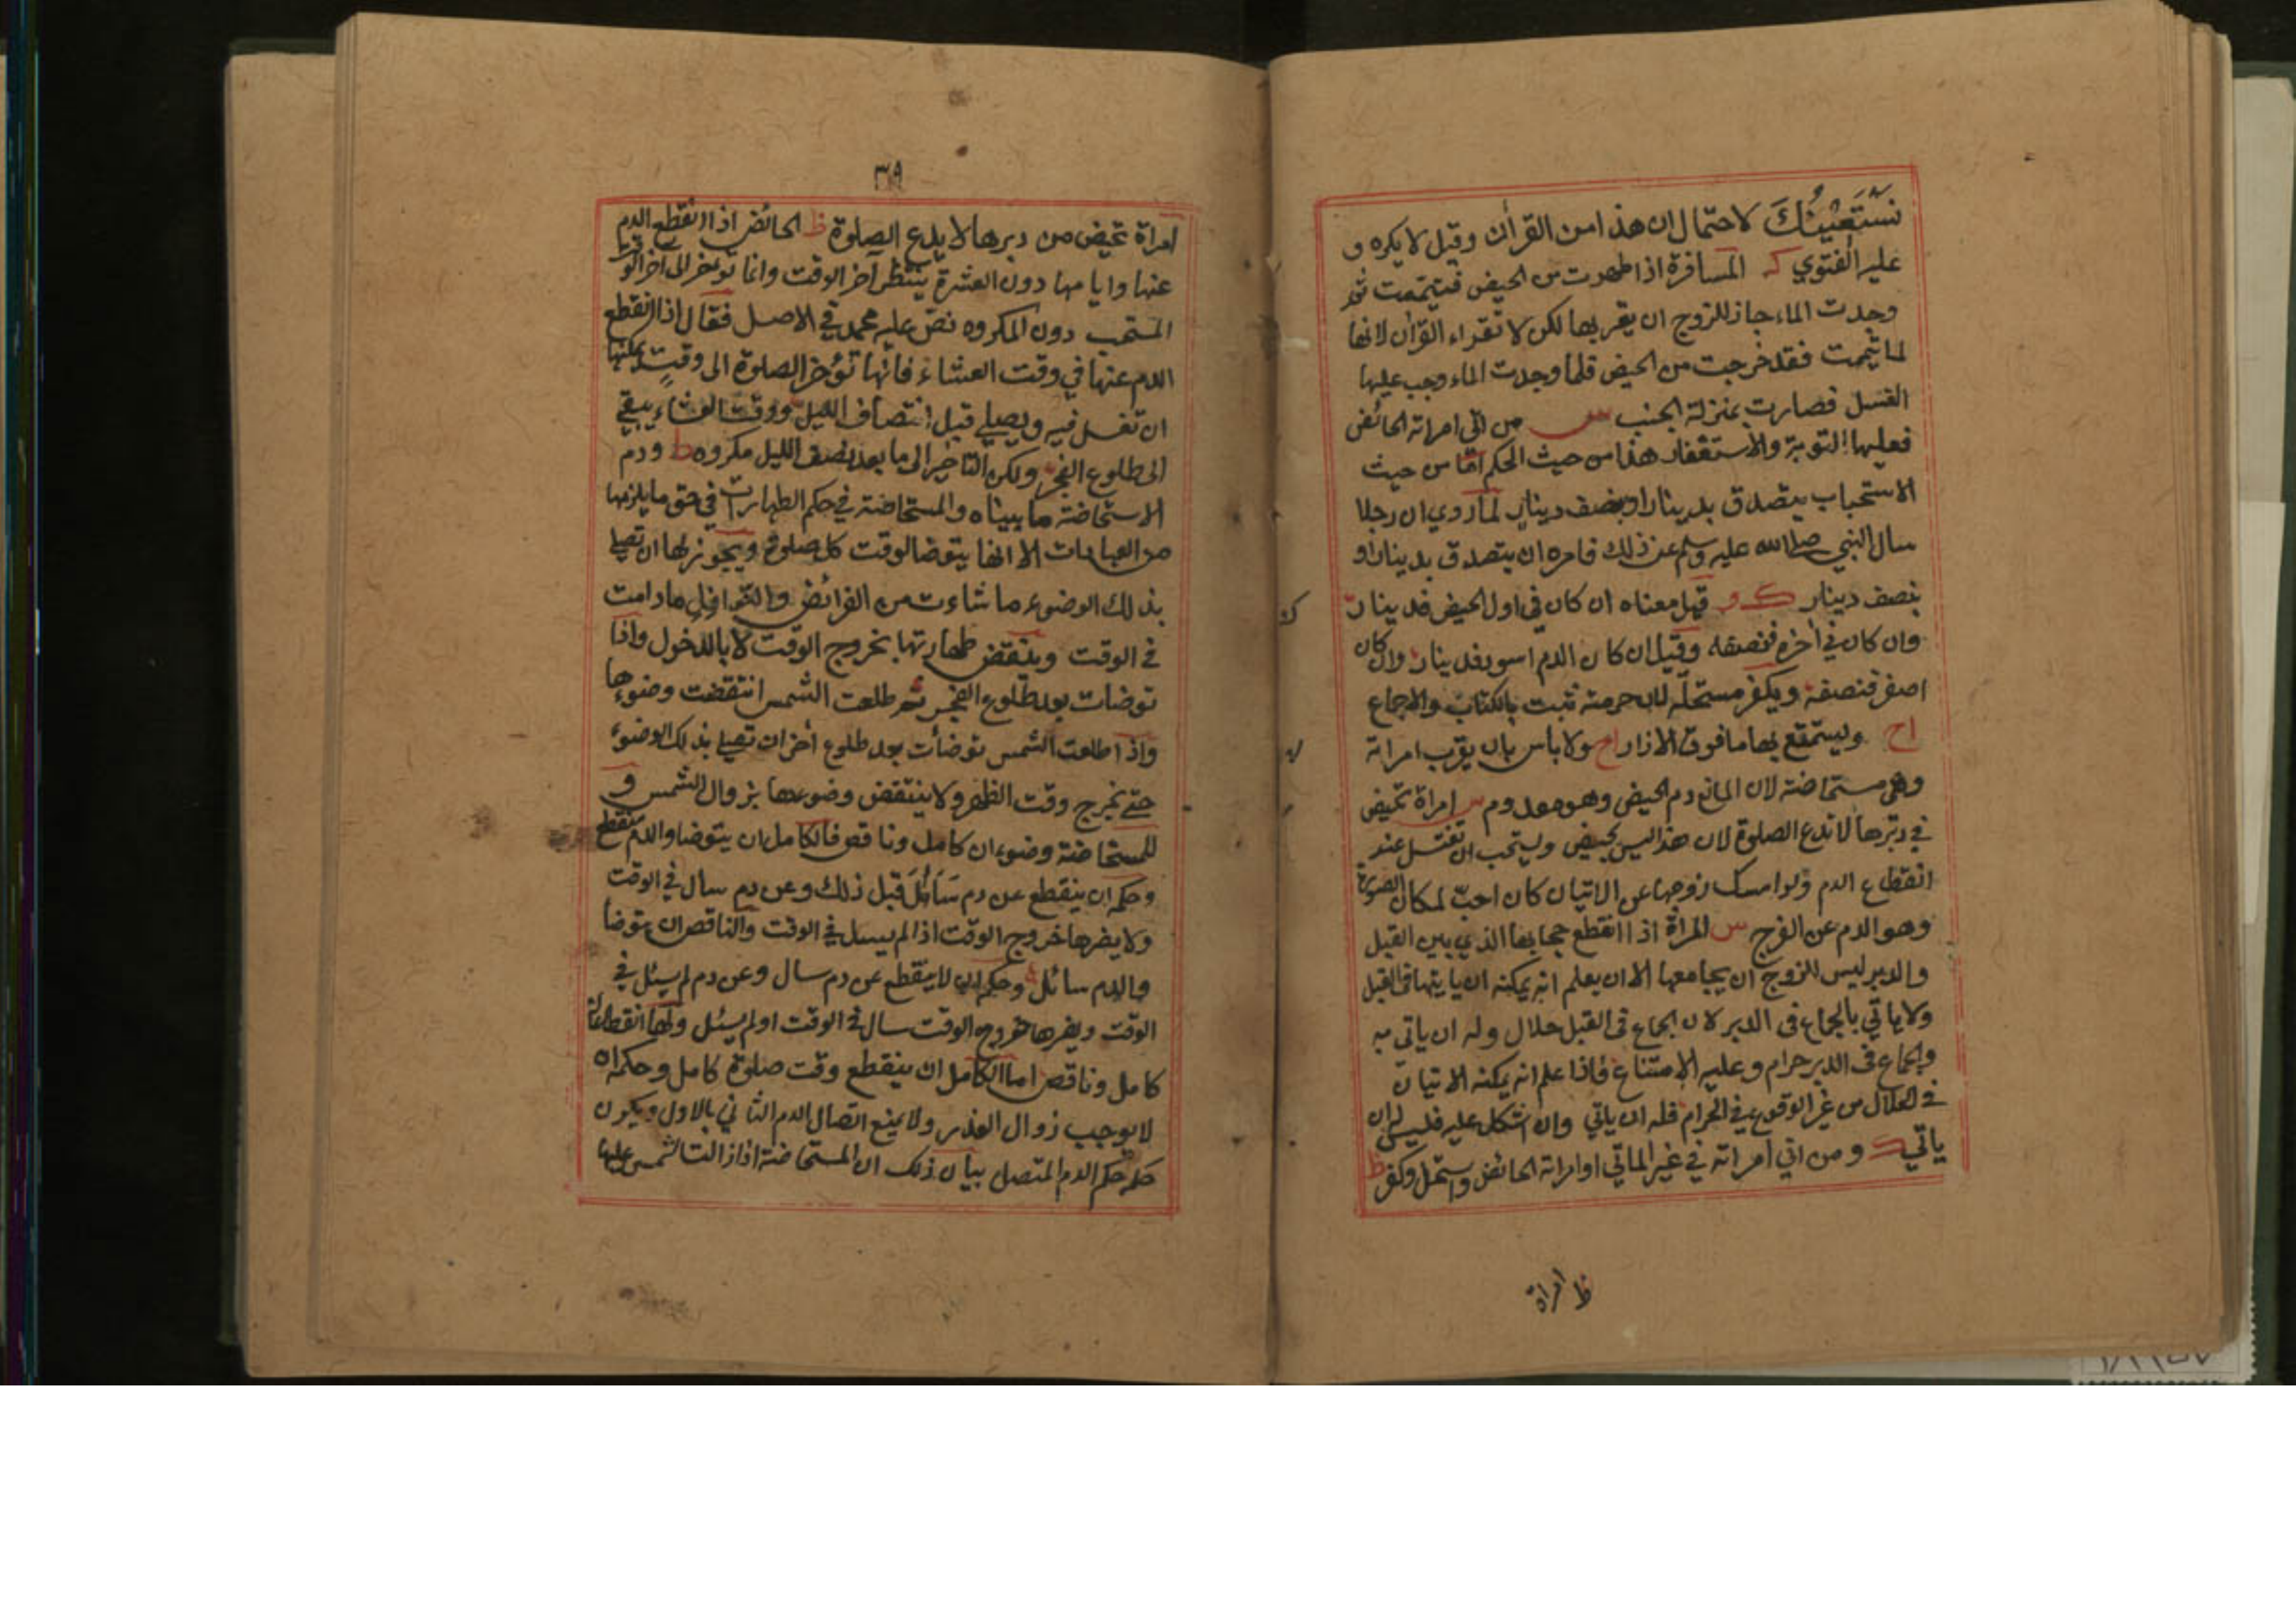 نَسْتَعِيْنُكَ لاحتمال ان هذا من القرأن وقيل لا يكره و
عليه الفتوي كـ المسافرة اذا طهرت من الحيض فتيممت ثم
وجدت الماء جاز للزوج ان يقربها لكن لا تقراء القرأن لانها
لما تيممت فقد خرجت من الحيض فلما وجدت الماء وجب عليها
الغسل فصارت بمنزلة الجنب س من اتى امراته الحائض
فعليها التوبة والاستغفار هذا من حيث الحكم امّا من حيث
الاستحباب يتصدق بدينار او بنصف دينار لما روي ان رجلا
سال النبي صلى الله عليه وسلم عن ذلك فامره ان يتصدق بدينار او
بنصف دينار قيل معناه ان كان في اول الحيض فدينار
وان كان في أخره فنصفه وقيل ان كان الدم اسود فدينار وان كان
اصفر فنصفه ويكفر مستحلّه لان حرمته تثبت بالكتاب والاجماع
اح ويستمتع بها ما فوق الازار ح ولا بأس بان يقرب امراته
وهى مستحاضة لان المانع دم الحيض وهو معدوم س امراة تحيض
في دبرها لا تدع الصلوة لان هذا ليس بحيض ويستحب ان تغتسل عند
انقطاع الدم ولو امسك زوجها عن الاتيان كان احبّ لمكان الصورة
وهو الدم عن الفرج س المراة اذا انقطع حجابها الذي بين القبل
والدبر ليس للزوج ان يجامعها الا ان يعلم انه يمكنه ان ياتيها فى القبل
ولا ياتي بالجماع فى الدبر لان الجماع فى القبل حلال وله ان ياتى به
والجماع فى الدبر حرام وعليه الامتناع فاذا علم انه يمكنه الاتيان
في الحلال من غير الوقوع في الحرام فله ان ياتي وان اشكل عليه فليس له ان
ياتي ومن اتي امراته في غير الماتي او امراته الحائض واستحل وكفر ظ
ظ امراة
٣١٩
امراة تحيض من دبرها لا يدع الصلوة ظ الحائض اذا انقطع الدم
عنها وايامها دون العشرة ينتظر آخر الوقت وانما تؤخر الى اخر الوقت
المستحب دون المكروه نصّ عليه محمد في الاصل فقال اذا انقطع
الدم عنها في وقت العشاء فانها تؤخر الصلوة الى وقتٍ يمكنها
ان تغسل فيه ويصلي قبل انتصاف الليل ووقت العشاء يبقي
الى طلوع الفجر ولكن التاخير الى ما بعد نصف الليل مكروه ط ودم
الاستحاضة ما بيناه والمستحاضة في حكم الطهارات في حق ما يلزمها
من العبادات الا انها يتوضا لوقت كل صلوة ويجوز لها ان تصلي
بذلك الوضوء ما شاءت من الفرائض والنوافل ما دامت
في الوقت وينتقض طهارتها بخروج الوقت لا بالدخول واذا
توضات بعد طلوع الفجر ثم طلعت الشمس انتقضت وضوءها
واذا طلعت الشمس توضأت بعد طلوع أخر ان تصلي بذلك الوضوء
حتي يخرج وقت الظهر ولا ينتقض وضوءها بزوال الشمس و
للمستحاضة وضوءان كامل وناقص فالكامل ان يتوضا والدم منقطع
وحكمه ان ينقطع عن دم سَائل قبل ذلك وعن دم سال في الوقت
ولا يضرها خروج الوقت اذا لم يسل في الوقت والناقص ان يتوضأ
والدم سائل وحكمه ان لا ينقطع عن دم سال وعن دم لم يسئل في
الوقت ويضرها خروج الوقت سال في الوقت او لم يسئل ولها انقطاعان
كامل وناقص اما الكامل ان ينقطع وقت صلوة كامل وحكمه ان
لا يوجب زوال العذر ولا يمنع اتصال الدم الثاني بالاول ويكون
حكمه حكم الدم المتصل بيان ذلك ان المستحاضة اذا زالت الشمس عليها